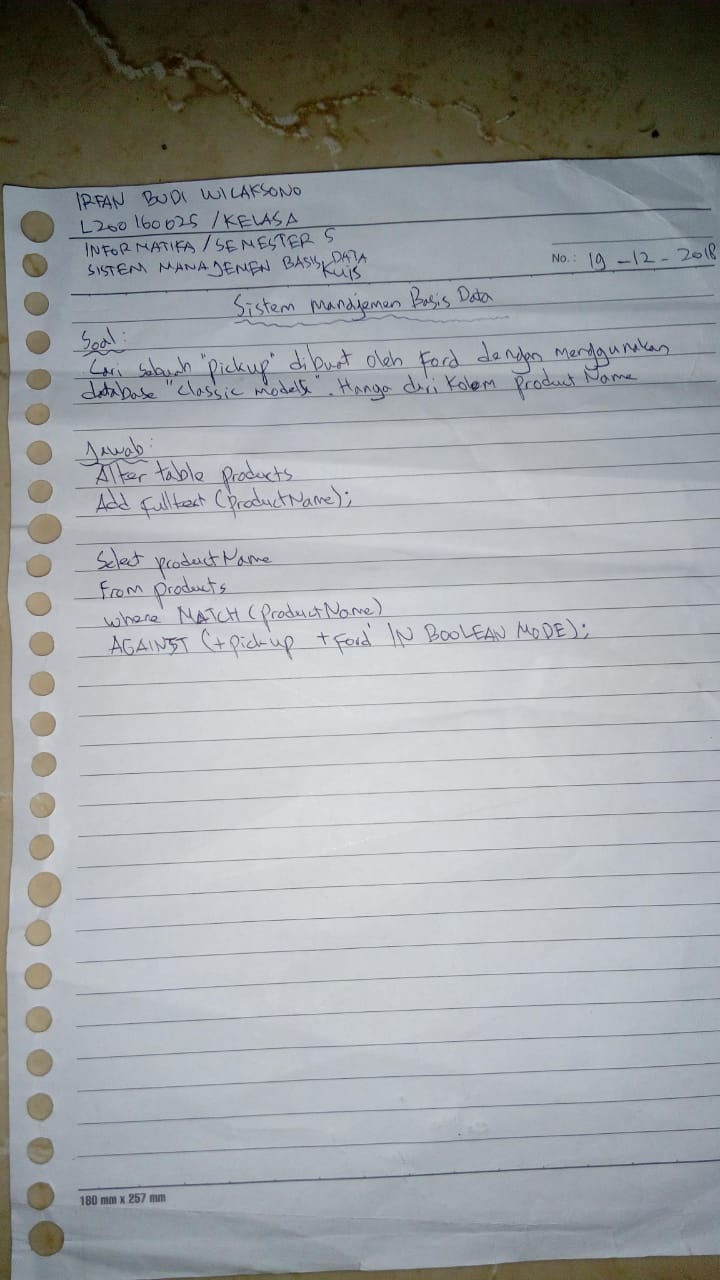 IRFAN BUDI WILAKSONO
L200160025 / KELAS A
INFORMATIKA / SEMESTER 5
SISTEM MANAJEMEN BASIS DATA
KUIS
No.: 19-12-2018
Sistem Manajemen Basis Data
Soal:
Cari sebuah "pickup" dibuat oleh Ford dengan menggunakan
database "classic models". Hanya dari kolom product Name
Jawab:
Alter table products
Add fulltext (productName);
Select productName
From products
where MATCH (productName)
AGAINST ('+pickup +Ford' IN BOOLEAN MODE);
180 mm x 257 mm